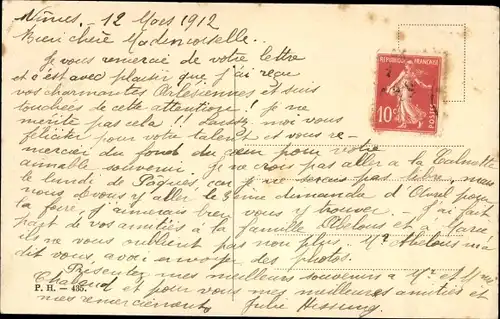 Nîmes, 12 Mars 1912
Bien chère Mademoiselle.
Je vous remercie de votre lettre
et c'est avec plaisir que j'ai reçu
vos charmantes Arlésiennes et suis
touchée de cette attention! Je ne
mérite pas cela!! Laissez moi vous
féliciter pour votre talent et vous re-
mercier du fond du cœur pour votre
aimable souvenir. Je ne crois pas aller a la
le lundi de Pâques, car je ne serais pas libre, mais
nous devons y aller le 3ème dimanche d'Avril pour
la foire, j'aimerais bien vous y trouver. J'ai fait
part de vos amitiés à la famille Abelous et a
ils ne vous oublient pas non plus. Mr Abelous m'a
dit vous avoir envoyé des photos.
Présentez mes meilleurs souvenirs a Mr et Mme
Chabaud et pour vous mes meilleures amitiés et
mes remerciements
P. H. — 435.
REPUBLIQUE FRANÇAISE
10c
POSTES